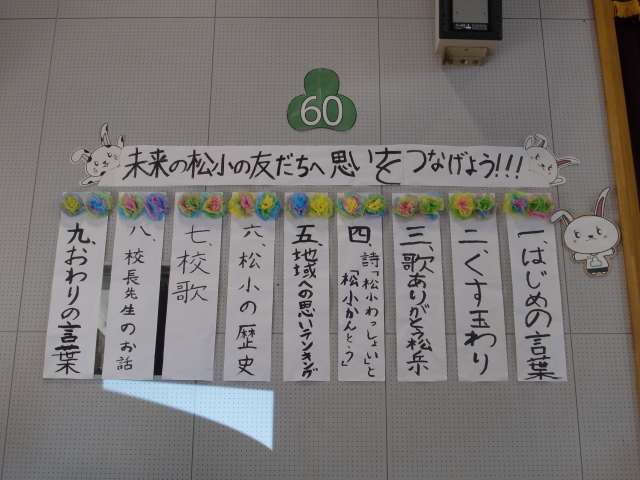 60
未来の松小の友だちへ思いをつなげよう!!!
一、はじめの言葉
二、くす玉わり
三、歌ありがとう松小
四、詩「松小わっしょい」と
「松小かんとう」
五、地域への思いランキング
六、松小の歴史
七、校歌
八、校長先生のお話
九、おわりの言葉